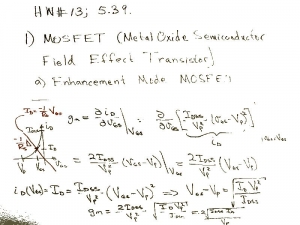 HW#13; 5.39.
1) MOSFET (Metal Oxide Semiconductor
Field Effect Transistor)
a) Enhancement Mode MOSFET
gm = ∂iD/∂VGS |VGS = ∂/∂VGS [IDSS/Vp² (VGS-Vp)²]
iD
= 2IDSS/Vp² (VGS-Vp)|VGS = 2IDSS/Vp² (VGS-Vp)
iD(VGS) = ID = IDSS/Vp² (VGS-Vp)² ⇒ VGS-Vp = √(ID Vp²/IDSS)
gm = 2IDSS/Vp² · √(ID Vp²/IDSS) = 2√(IDSS ID)/Vp